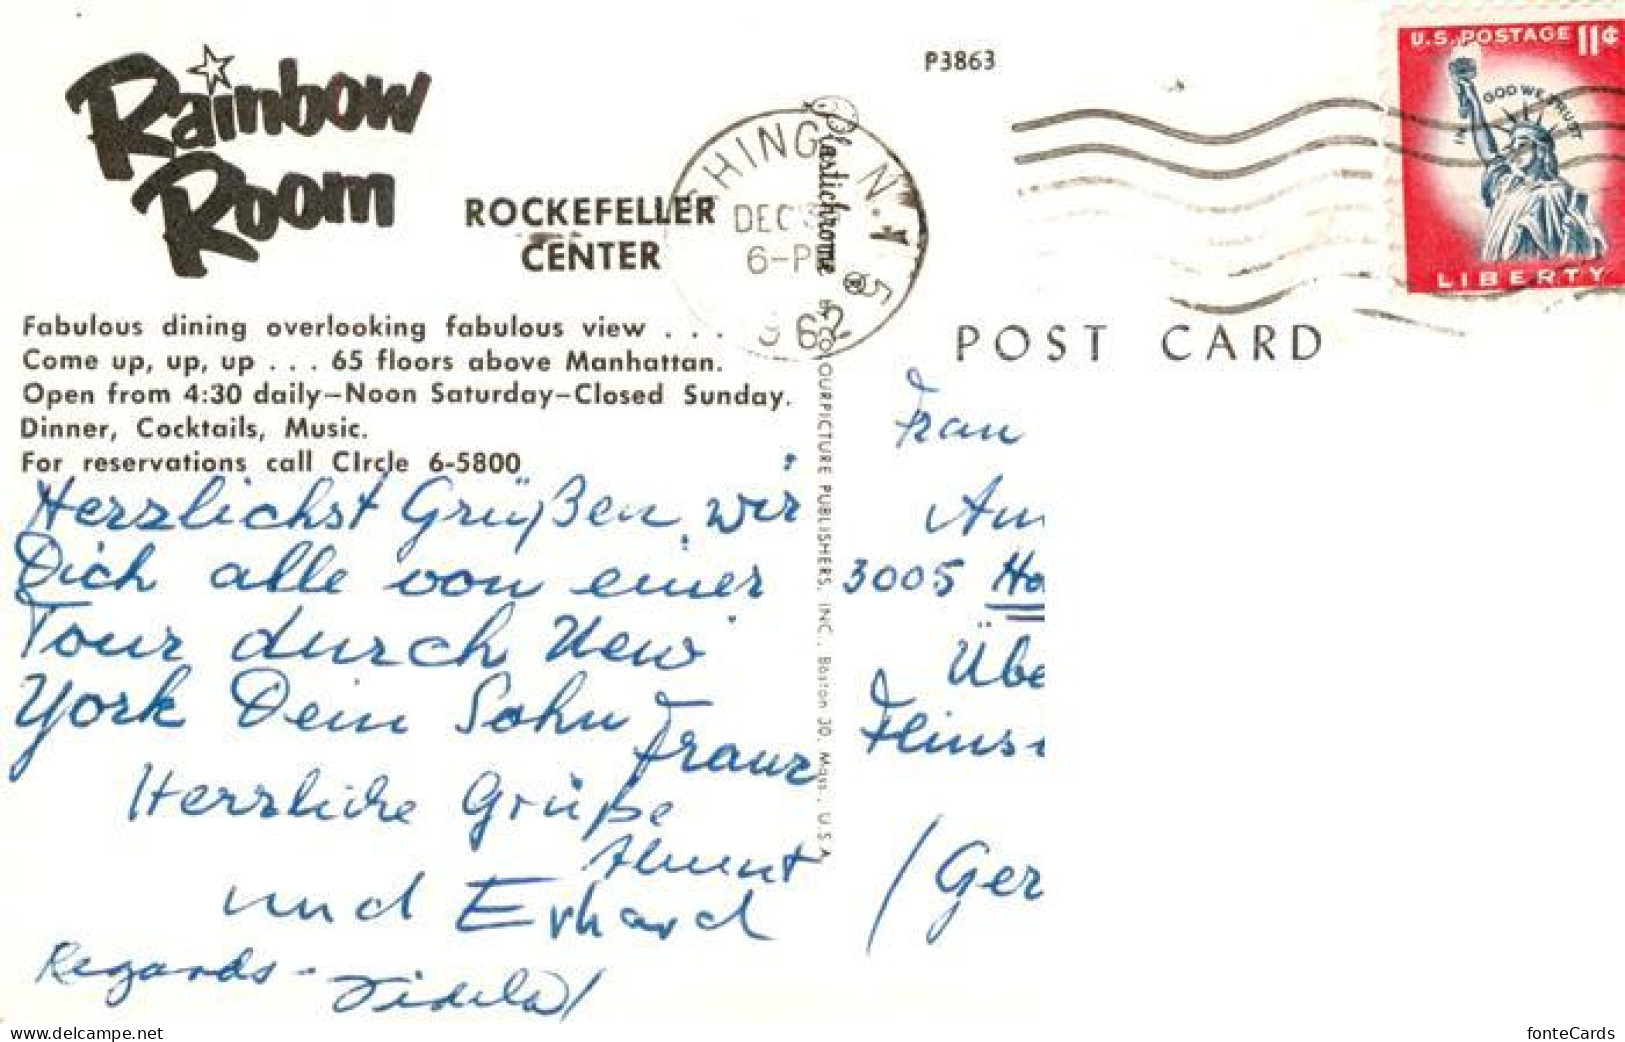 Rainbow
Room
ROCKEFELLER
CENTER
Fabulous dining overlooking fabulous view . . .
Come up, up, up . . . 65 floors above Manhattan.
Open from 4:30 daily—Noon Saturday—Closed Sunday.
Dinner, Cocktails, Music.
For reservations call CIrcle 6-5800
Herzlichst Grüßen wir
Dich alle von einer
Tour durch New
York Dein Sohn
Franz
Herzliche Grüße
und Erhard
Regards -
Plastichrome ®
COLOURPICTURE PUBLISHERS, INC., Boston 30, Mass., U.S.A.
P3863
SHING N.Y
DEC
6-P
5
962
U.S. POSTAGE 11¢
IN GOD WE TRUST
LIBERTY
POST CARD
Frau
Am
3005 Ho
Übe
(Ger
www.delcampe.net
fonteCards